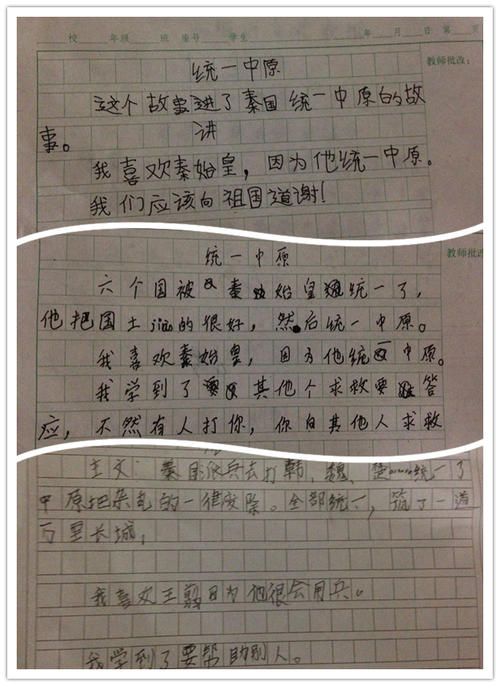 校 年级 班 座号 学生 年 月 日 第 页
教师批改：
统一中原
这个故事进了秦国统一中原的故
讲
事。
我喜欢秦始皇，因为他统一中原。
我们应该向祖国道谢！
统一中原
教师批改
六个国被秦始皇统一了，
他把国土jiu的很好，然后统一中原。
我喜欢秦始皇，因为他统一中原。
我学到了其他个求救要答
应，不然有人打你，你自其他人求救
主文：秦国派兵去打韩、魏、楚统一了
中原把杂乱的一律废除。全部统一，筑了一道
万里长城，
我喜欢王翦因为他很会用兵。
我学到了要帮助别人。